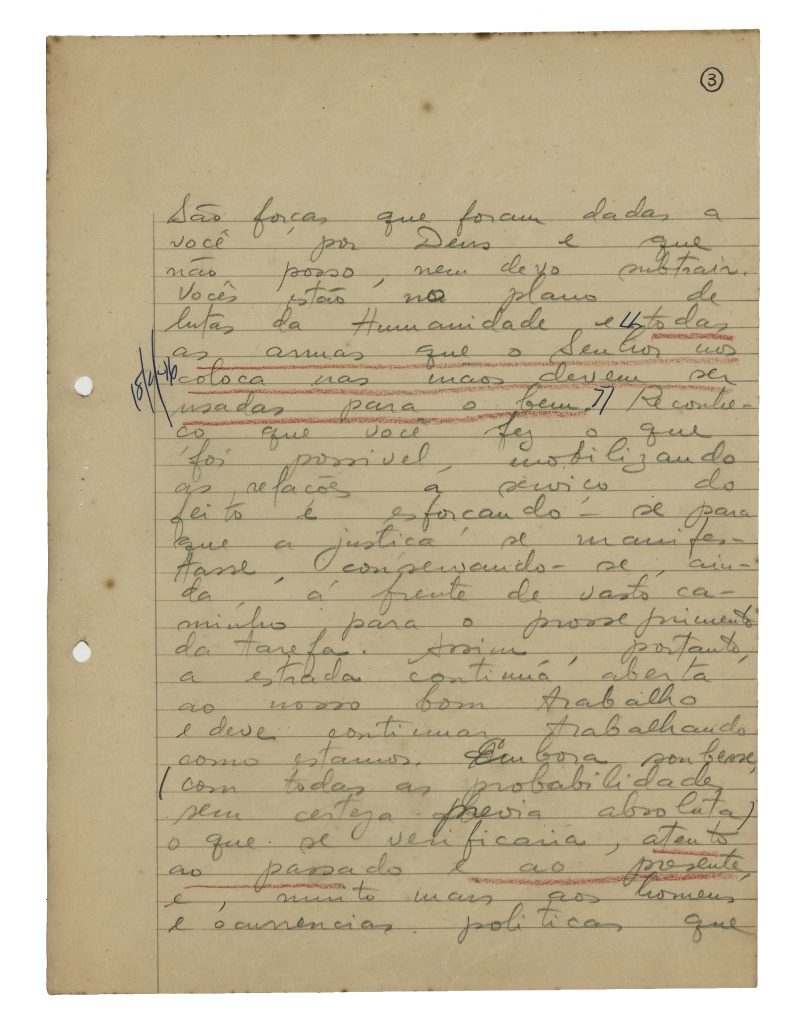 3
São forças que foram dadas a
você por Deus e que
não posso, nem devo subtrair.
Vocês estão no plano de
lutas da Humanidade e "todas
as armas que o Senhor nos
coloca nas mãos devem ser
usadas para o bem." Reconhe-
ço que você fez o que
foi possivel, mobilizando
as relações á serviço do
feito e esforçando-se para
que a justiça se manifes-
tasse, conservando-se, ain-
da, á frente de vasto ca-
minho para o prosseguimento
da tarefa. Assim, portanto,
a estrada continuá aberta
ao nosso bom trabalho
e deve continuar trabalhando
como estamos. Embora soubesse,
(com todas as probabilidades,
sem certeza previa absoluta)
o que se verificaria, atento
ao passado e ao presente
e, muito mais aos homens
e ocurrencias politicas que